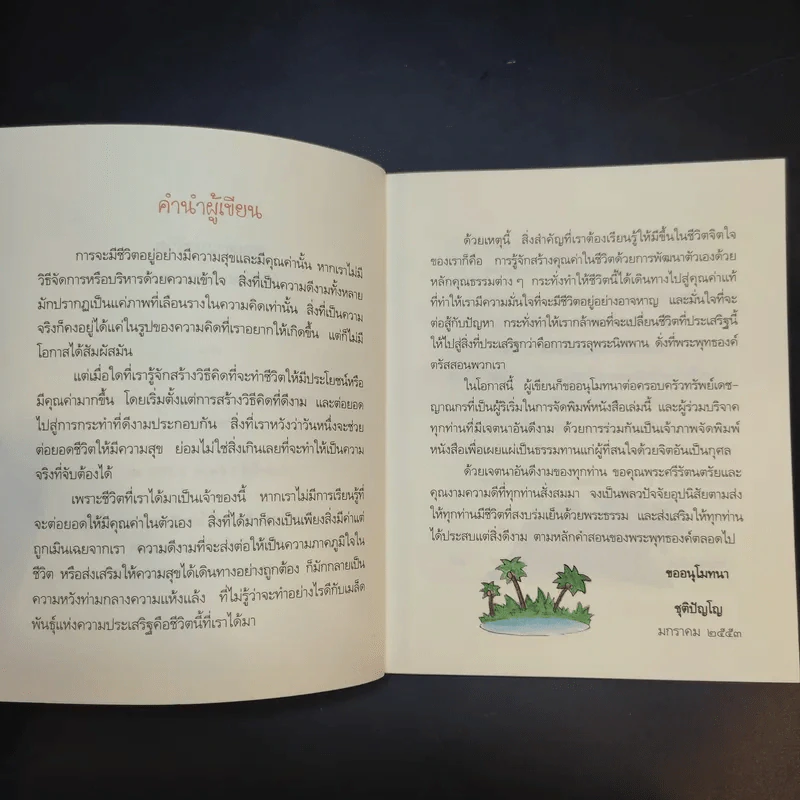 คำนำผู้เขียน
การจะมีชีวิตอยู่อย่างมีความสุขและมีคุณค่านั้น หากเราไม่มี
วิธีจัดการหรือบริหารด้วยความเข้าใจ สิ่งที่เป็นความดีงามทั้งหลาย
มักปรากฏเป็นแค่ภาพที่เลือนรางในความคิดเท่านั้น สิ่งที่เป็นความ
จริงก็คงอยู่ได้แค่ในรูปของความคิดที่เราอยากให้เกิดขึ้น แต่ก็ไม่มี
โอกาสได้สัมผัสมัน
แต่เมื่อใดที่เรารู้จักสร้างวิธีคิดที่จะทำชีวิตให้มีประโยชน์หรือ
มีคุณค่ามากขึ้น โดยเริ่มตั้งแต่การสร้างวิธีคิดที่ดีงาม และต่อยอด
ไปสู่การกระทำที่ดีงามประกอบกัน สิ่งที่เราหวังว่าวันหนึ่งจะช่วย
ต่อยอดชีวิตให้มีความสุข ย่อมไม่ใช่สิ่งเกินเลยที่จะทำให้เป็นความ
จริงที่จับต้องได้
เพราะชีวิตที่เราได้มาเป็นเจ้าของนี้ หากเราไม่มีการเรียนรู้ที่
จะต่อยอดให้มีคุณค่าในตัวเอง สิ่งที่ได้มาก็คงเป็นเพียงสิ่งมีค่าแต่
ถูกเมินเฉยจากเรา ความดีงามที่จะส่งต่อให้เป็นความภาคภูมิใจใน
ชีวิต หรือส่งเสริมให้ความสุขได้เดินทางอย่างถูกต้อง ก็มักกลายเป็น
ความหวังท่ามกลางความแห้งแล้ง ที่ไม่รู้ว่าจะทำอย่างไรดีกับเมล็ด
พันธุ์แห่งความประเสริฐคือชีวิตนี้ที่เราได้มา
ด้วยเหตุนี้ สิ่งสำคัญที่เราต้องเรียนรู้ให้มีขึ้นในชีวิตจิตใจ
ของเราก็คือ การรู้จักสร้างคุณค่าในชีวิตด้วยการพัฒนาตัวเองด้วย
หลักคุณธรรมต่าง ๆ กระทั่งทำให้ชีวิตนี้ได้เดินทางไปสู่คุณค่าแท้
ที่ทำให้เรามีความมั่นใจที่จะมีชีวิตอยู่อย่างอาจหาญ และมั่นใจที่จะ
ต่อสู้กับปัญหา กระทั่งทำให้เรากล้าพอที่จะเปลี่ยนชีวิตที่ประเสริฐนี้
ให้ไปสู่สิ่งที่ประเสริฐกว่าคือการบรรลุพระนิพพาน ดั่งที่พระพุทธองค์
ตรัสสอนพวกเรา
ในโอกาสนี้ ผู้เขียนก็ขออนุโมทนาต่อครอบครัวทรัพย์เดช-
ญาณกรที่เป็นผู้ริเริ่มในการจัดพิมพ์หนังสือเล่มนี้ และผู้ร่วมบริจาค
ทุกท่านที่มีเจตนาอันดีงาม ด้วยการร่วมกันเป็นเจ้าภาพจัดพิมพ์
หนังสือเพื่อเผยแผ่เป็นธรรมทานแก่ผู้ที่สนใจด้วยจิตอันเป็นกุศล
ด้วยเจตนาอันดีงามของทุกท่าน ขอคุณพระศรีรัตนตรัยและ
คุณงามความดีที่ทุกท่านสั่งสมมา จงเป็นพลวปัจจัยอุปนิสัยตามส่ง
ให้ทุกท่านมีชีวิตที่สงบร่มเย็นด้วยพระธรรม และส่งเสริมให้ทุกท่าน
ได้ประสบแต่สิ่งดีงาม ตามหลักคำสอนของพระพุทธองค์ตลอดไป
ขออนุโมทนา
ชุติปัญโญ
มกราคม ๒๕๕๓